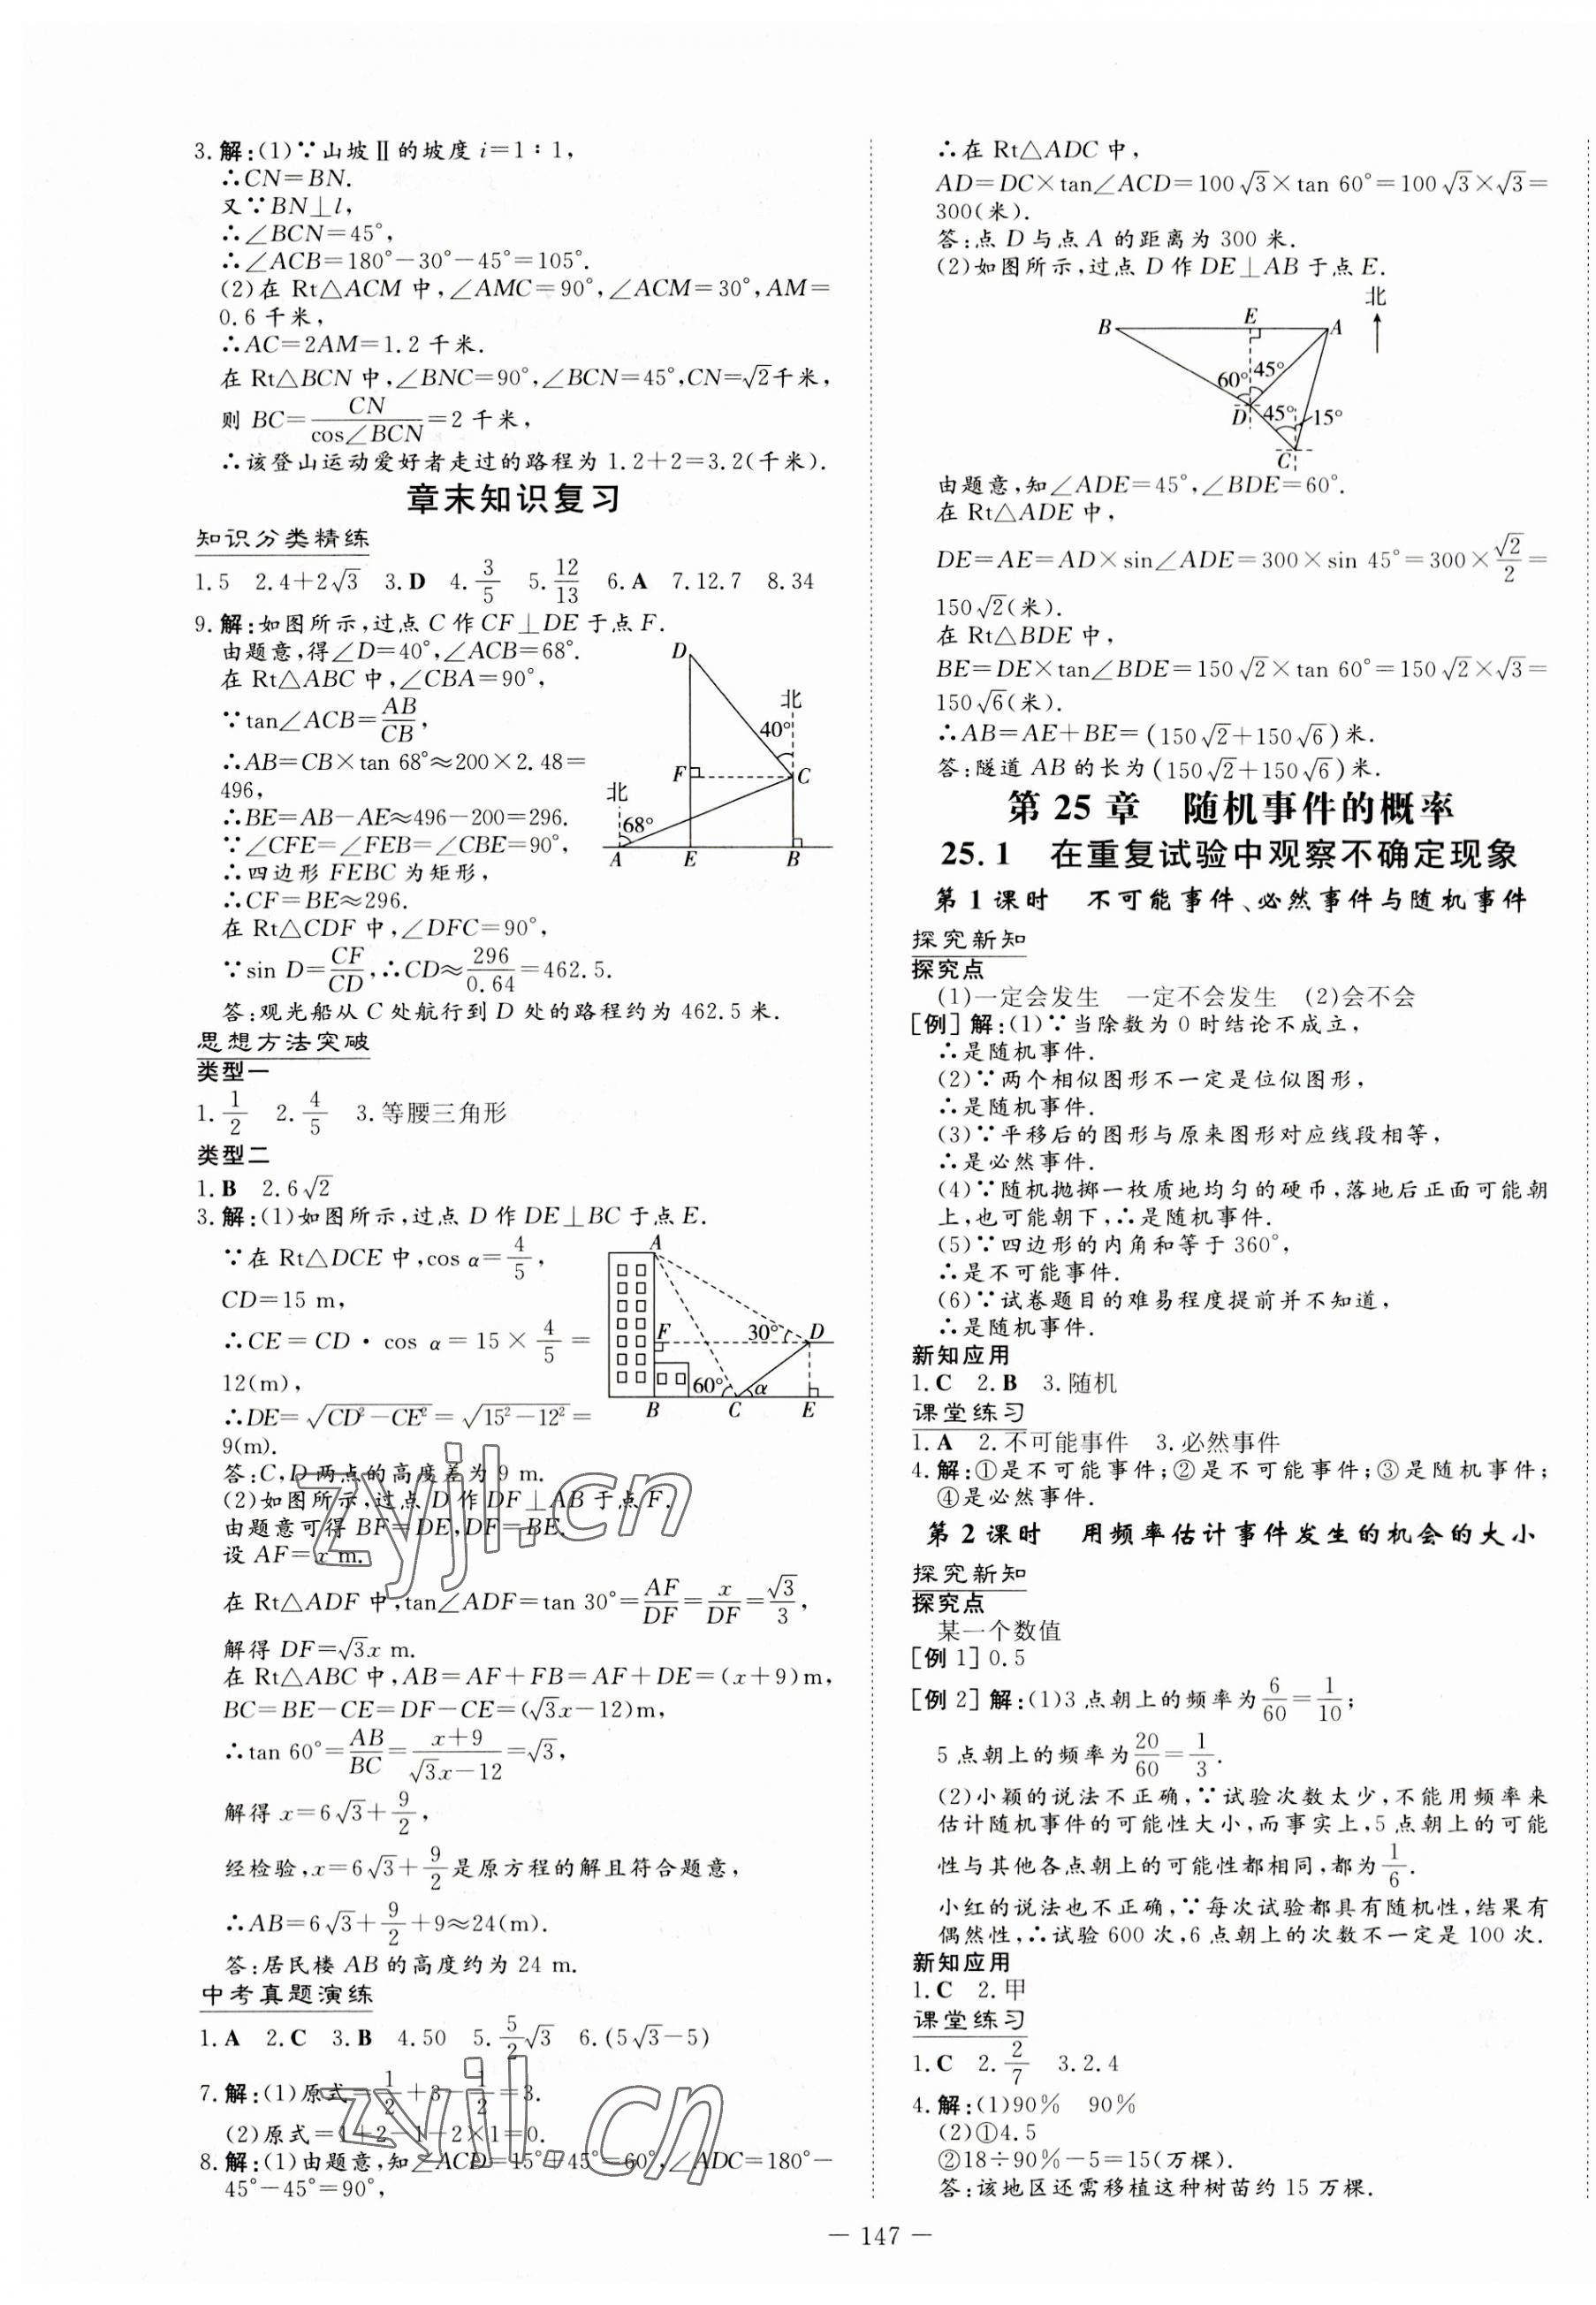 3.解:(1)∵山坡Ⅱ的坡度 i=1∶1,
∴CN=BN.
又∵BN⊥l,
∴∠BCN=45°,
∴∠ACB=180°-30°-45°=105°.
(2)在 Rt△ACM 中,∠AMC=90°,∠ACM=30°,AM=
0.6 千米,
∴AC=2AM=1.2 千米.
在 Rt△BCN 中,∠BNC=90°,∠BCN=45°,CN=√2千米,
则 BC=CN/cos∠BCN=2 千米,
∴该登山运动爱好者走过的路程为 1.2+2=3.2(千米).
章末知识复习
知识分类精练
1.5 2.4+2√3 3.D 4.3/5 5.12/13 6.A 7.12.7 8.34
9.解:如图所示,过点 C 作 CF⊥DE 于点 F.
由题意,得∠D=40°,∠ACB=68°.
在 Rt△ABC 中,∠CBA=90°,
∵tan∠ACB=AB/CB,
∴AB=CB×tan 68°≈200×2.48=
496,
∴BE=AB-AE≈496-200=296.
∵∠CFE=∠FEB=∠CBE=90°,
∴四边形 FEBC 为矩形,
∴CF=BE≈296.
在 Rt△CDF 中,∠DFC=90°,
∵sin D=CF/CD,∴CD≈296/0.64=462.5.
答:观光船从 C 处航行到 D 处的路程约为 462.5 米.
D
北
40°
F
C
北
68°
A
E
B
思想方法突破
类型一
1.1/2 2.4/5 3.等腰三角形
类型二
1.B 2.6√2
3.解:(1)如图所示,过点 D 作 DE⊥BC 于点 E.
∵在 Rt△DCE 中,cos α=4/5,
CD=15 m,
∴CE=CD·cos α=15×4/5=
12(m),
∴DE=√(CD²-CE²)=√(15²-12²)=
9(m).
答:C,D 两点的高度差为 9 m.
A
F
30°
D
60°
α
B
C
E
(2)如图所示,过点 D 作 DF⊥AB 于点 F.
由题意可得 BF=DE,DF=BE.
设 AF=x m.
在 Rt△ADF 中,tan∠ADF=tan 30°=AF/DF=x/DF=√3/3,
解得 DF=√3x m.
在 Rt△ABC 中,AB=AF+FB=AF+DE=(x+9)m,
BC=BE-CE=DF-CE=(√3x-12)m,
∴tan 60°=AB/BC=(x+9)/(√3x-12)=√3,
解得 x=6√3+9/2,
经检验,x=6√3+9/2是原方程的解且符合题意,
∴AB=6√3+9/2+9≈24(m).
答:居民楼 AB 的高度约为 24 m.
中考真题演练
1.A 2.C 3.B 4.50 5.5/2√3 6.(5√3-5)
7.解:(1)原式=1/2+3-1/2=3.
(2)原式=1+2-1-2×1=0.
8.解:(1)由题意,知∠ACD=15°+45°=60°,∠ADC=180°-
45°-45°=90°,
∴在 Rt△ADC 中,
AD=DC×tan∠ACD=100√3×tan 60°=100√3×√3=
300(米).
答:点 D 与点 A 的距离为 300 米.
(2)如图所示,过点 D 作 DE⊥AB 于点 E.
北
B
E
A
60°
45°
D
45°
15°
C
由题意,知∠ADE=45°,∠BDE=60°.
在 Rt△ADE 中,
DE=AE=AD×sin∠ADE=300×sin 45°=300×√2/2=
150√2(米).
在 Rt△BDE 中,
BE=DE×tan∠BDE=150√2×tan 60°=150√2×√3=
150√6(米).
∴AB=AE+BE=(150√2+150√6)米.
答:隧道 AB 的长为(150√2+150√6)米.
第 25 章 随机事件的概率
25.1 在重复试验中观察不确定现象
第 1 课时 不可能事件、必然事件与随机事件
探究新知
探究点
(1)一定会发生 一定不会发生 (2)会不会
[例]解:(1)∵当除数为 0 时结论不成立,
∴是随机事件.
(2)∵两个相似图形不一定是位似图形,
∴是随机事件.
(3)∵平移后的图形与原来图形对应线段相等,
∴是必然事件.
(4)∵随机抛掷一枚质地均匀的硬币,落地后正面可能朝
上,也可能朝下,∴是随机事件.
(5)∵四边形的内角和等于 360°,
∴是不可能事件.
(6)∵试卷题目的难易程度提前并不知道,
∴是随机事件.
新知应用
1.C 2.B 3.随机
课堂练习
1.A 2.不可能事件 3.必然事件
4.解:①是不可能事件;②是不可能事件;③是随机事件;
④是必然事件.
第 2 课时 用频率估计事件发生的机会的大小
探究新知
探究点
某一个数值
[例 1]0.5
[例 2]解:(1)3 点朝上的频率为6/60=1/10;
5 点朝上的频率为20/60=1/3.
(2)小颖的说法不正确,∵试验次数太少,不能用频率来
估计随机事件的可能性大小,而事实上,5 点朝上的可能
性与其他各点朝上的可能性都相同,都为1/6.
小红的说法也不正确,∵每次试验都具有随机性,结果有
偶然性,∴试验 600 次,6 点朝上的次数不一定是 100 次.
新知应用
1.C 2.甲
课堂练习
1.C 2.2/7 3.2.4
4.解:(1)90% 90%
(2)①4.5
②18÷90%-5=15(万棵).
答:该地区还需移植这种树苗约 15 万棵.
— 147 —
zyjl.cn
zyjl.cn